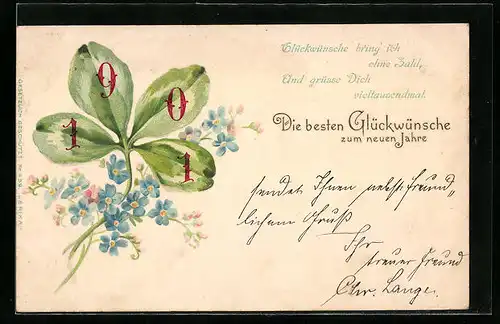 Glückwünsche bring' ich
ohne Zahl,
Und grüsse Dich
vieltausendmal.
Die besten Glückwünsche
zum neuen Jahre
1 9 0 1
sendet Ihnen nebst freund-
lichem Gruß
Ihr
treuer Freund
Chr. Lange.
GESETZLICH GESCHÜTZT